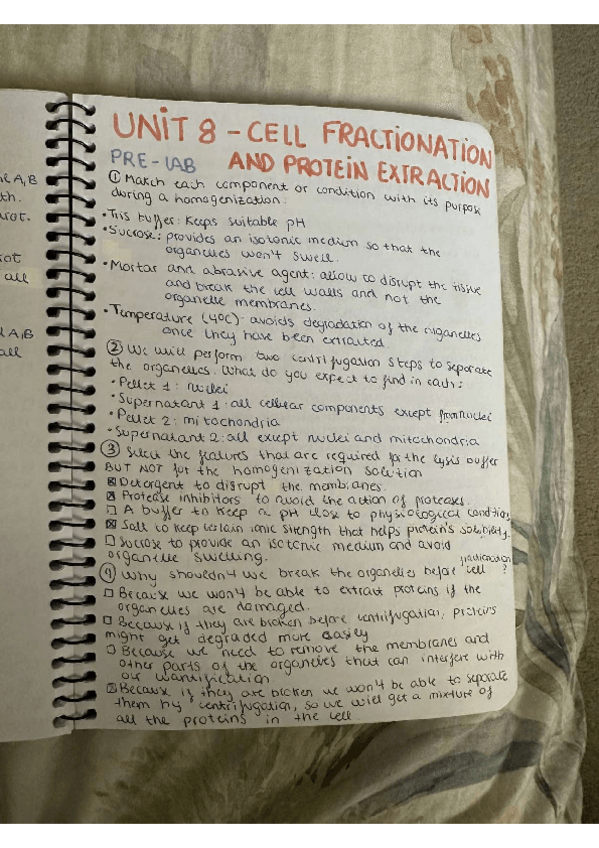 al A,B
th.
arot.
rot
all
A,B
all
UNIT 8 - CELL FRACTIONATION
PRE-LAB AND PROTEIN EXTRACTION
① Match each component or condition with its purpose
during a homogenization.
• Tris buffer: Keeps suitable pH
• Sucrose: provides an isotonic medium so that the
organelles won't swell.
• Mortar and abrasive agent: allow to disrupt the tissue
and break the cell walls and not the
organelle membranes.
• Temperature (4ºC): avoids degradation of the organelles
once they have been extracted.
② We will perform two centrifugation steps to separate
the organelles. What do you expect to find in each:
• Pellet 1: nuclei
• Supernatant 1: all cellular components except from nuclei
• Pellet 2: mitochondria
• Supernatant 2: all except nuclei and mitochondria
③ Select the features that are required for the lysis buffer
BUT NOT for the homogenization solution
☒ Detergent to disrupt the membranes.
☒ Protease inhibitors to avoid the action of proteases.
☐ A buffer to keep a pH close to physiological conditions
☒ Salt to keep certain ionic strength that helps protein's solubility.
☐ Sucrose to provide an isotonic medium and avoid
organelle swelling.
④ Why shouldn't we break the organelles before cell fractionation?
☐ Because we won't be able to extract proteins if the
organelles are damaged.
☐ Because if they are broken before centrifugation, proteins
might get degraded more easily
☐ Because we need to remove the membranes and
other parts of the organelles that can interfere with
our quantification.
☒ Because if they are broken we won't be able to separate
them by centrifugation, so we will get a mixture of
all the proteins in the cell.